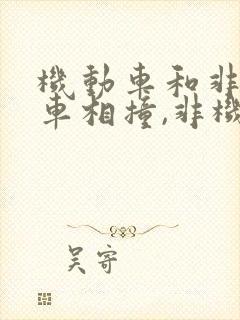 機動車和非
車相撞,非機
吴寄